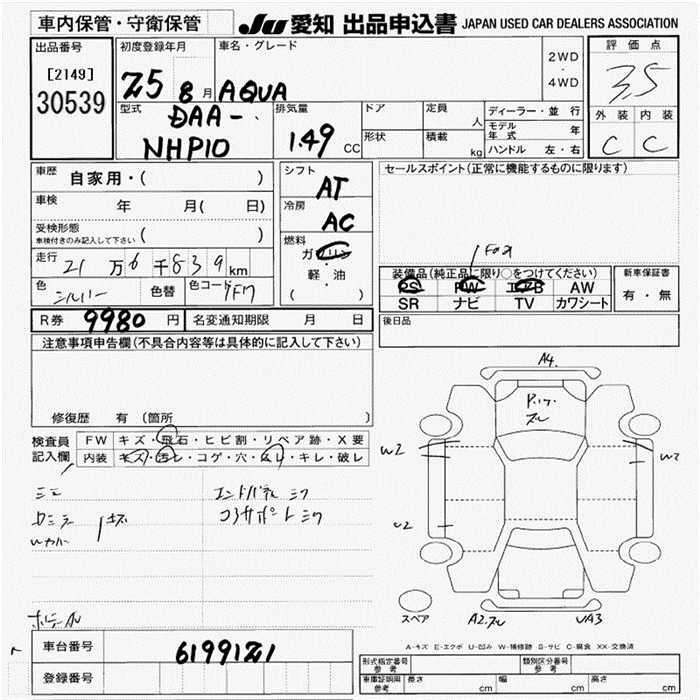 車内保管・守衛保管 JU 愛知 出品申込書 JAPAN USED CAR DEALERS ASSOCIATION
出品番号 初度登録年月 車名・グレード 2WD・4WD 評価点
[2149] 25 8月 AQUA 3.5
30539 型式 DAA- 排気量 ドア 定員 人 ディーラー・並行 外装 内装
モデル年式 年
NHP10 1.49 CC 形状 積載 kg ハンドル 左・右 C C
車歴 自家用・( ) シフト AT セールスポイント(正常に機能するものに限ります)
車検 年 月( 日) 冷房 AC
受検形態 ( )
車検付きのみ記入して下さい 燃料 ガソリン
走行 21万6千839km 軽・油 装備品(純正品に限り○をつけてください) 新車保証書
色 シルバー 色替 色コード 1F7 ( ) PS PW エアB AW 有・無
SR ナビ TV カワシート
R券 9980円 名変通知期限 月 日 後日品
注意事項申告欄(不具合内容等は具体的に記入して下さい)
修復歴 有 (箇所 )
検査員記入欄 FW キズ・飛石・ヒビ割・リペア跡・X要
内装 キズ・汚レ・コゲ・穴・ムレ・キレ・破レ
A4
W2
W2
スペア A2 UA3
A-キズ E-エクボ U-凹み W-補修跡 S-サビ C-腐食 XX-交換済
車台番号 6199121
登録番号
形式指定番号 参考 類別区分番号 参考
車庫証明用 参考 長さ cm 幅 cm 高さ cm